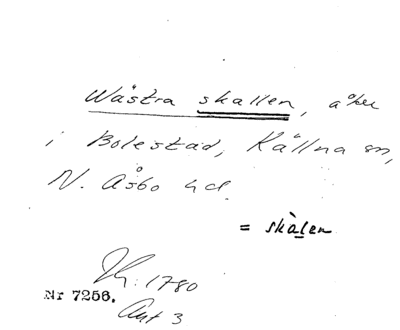 Wästra skallen, åker
i Bolestad, Källna sn,
N. Åsbo hd.
= skàlen
1780
Nr 7256.
Akt 3